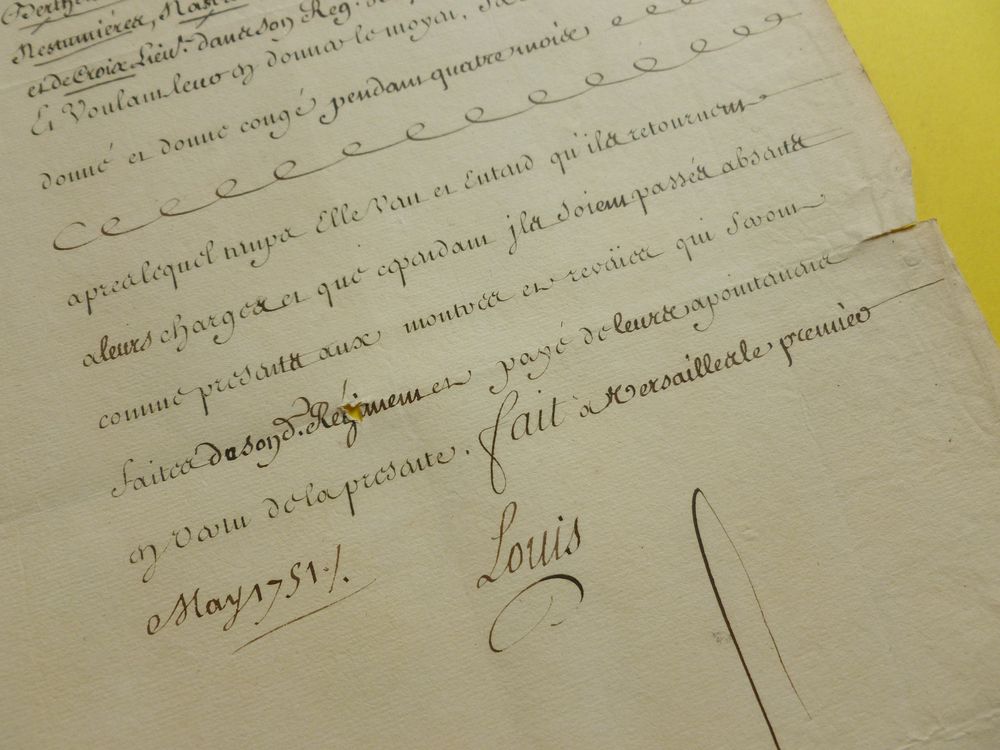 Nestumiéres,
et de Croix Lieut. dans son Reg. de
Et Voulant leur en donner le moyen, Sa
donné et donne congé pendant quatre mois
apres lequel temps Elle Veut et Entend qu'ils retournent
a leurs charges et que cependant ils soient passés absents
comme presents aux montres et reveües qui seront
faites de son d. Régiment et payé de leurs apointements
en vertu de la presente. fait a Versailles le premier
May 1751 ./.
Louis